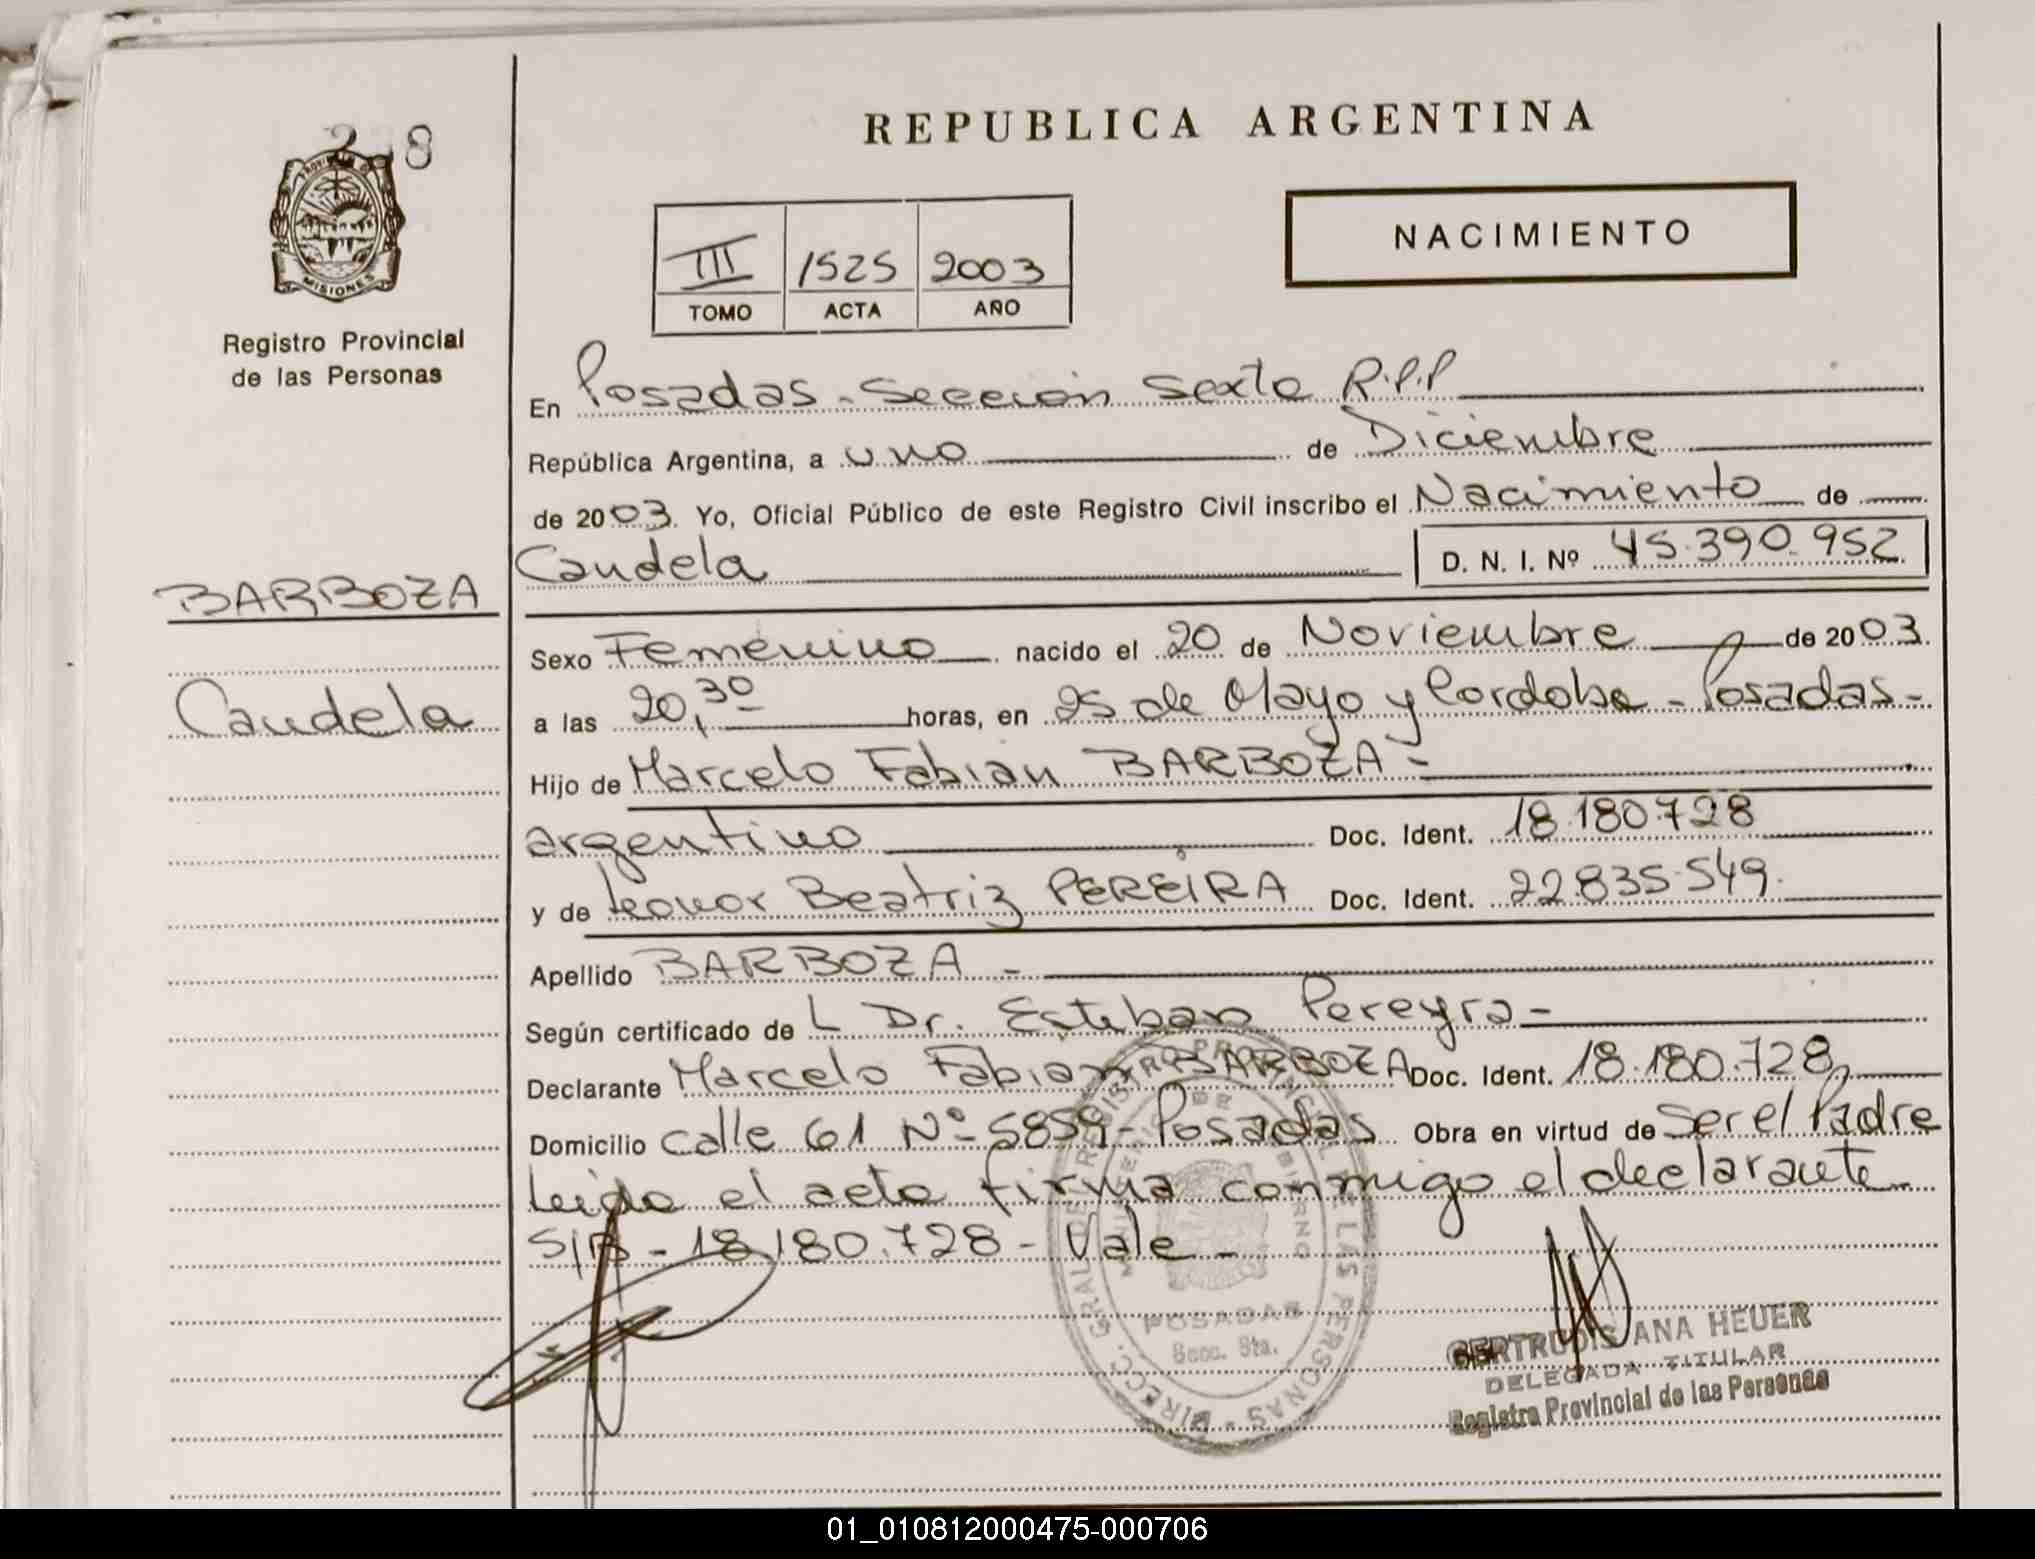 REPUBLICA ARGENTINA
2 8
PROVINCIA DE
MISIONES
Registro Provincial
de las Personas
NACIMIENTO
III 1525 2003
TOMO ACTA AÑO
En Posadas - Sección Sexta R.P.P
República Argentina, a uno de Diciembre
de 2003. Yo, Oficial Público de este Registro Civil inscribo el Nacimiento de
Candela D. N. I. Nº 45.390.952
BARBOZA
Candela
Sexo Femenino nacido el 20 de Noviembre de 2003.
a las 20,30 horas, en 25 de Mayo y Cordoba - Posadas -
Hijo de Marcelo Fabian BARBOZA -
argentino Doc. Ident. 18.180.728
y de Leonor Beatriz PEREIRA Doc. Ident. 22.835.549.
Apellido BARBOZA -
Según certificado de L Dr. Esteban Pereyra -
Declarante Marcelo Fabian BARBOZA Doc. Ident. 18.180.728
Domicilio calle 61 Nº 5859 - Posadas Obra en virtud de Ser el Padre
Leida el acta firma conmigo el declarante
S/R - 18.180.728 - Vale -
DIRECC. GRAL DE REGISTRO PROVINCIAL DE LAS PERSONAS
MINISTERIO DE GOBIERNO
POSADAS
Secc. 6ta.
GERTRUDIS ANA HEUER
DELEGADA TITULAR
Registro Provincial de las Personas
01_010812000475-000706